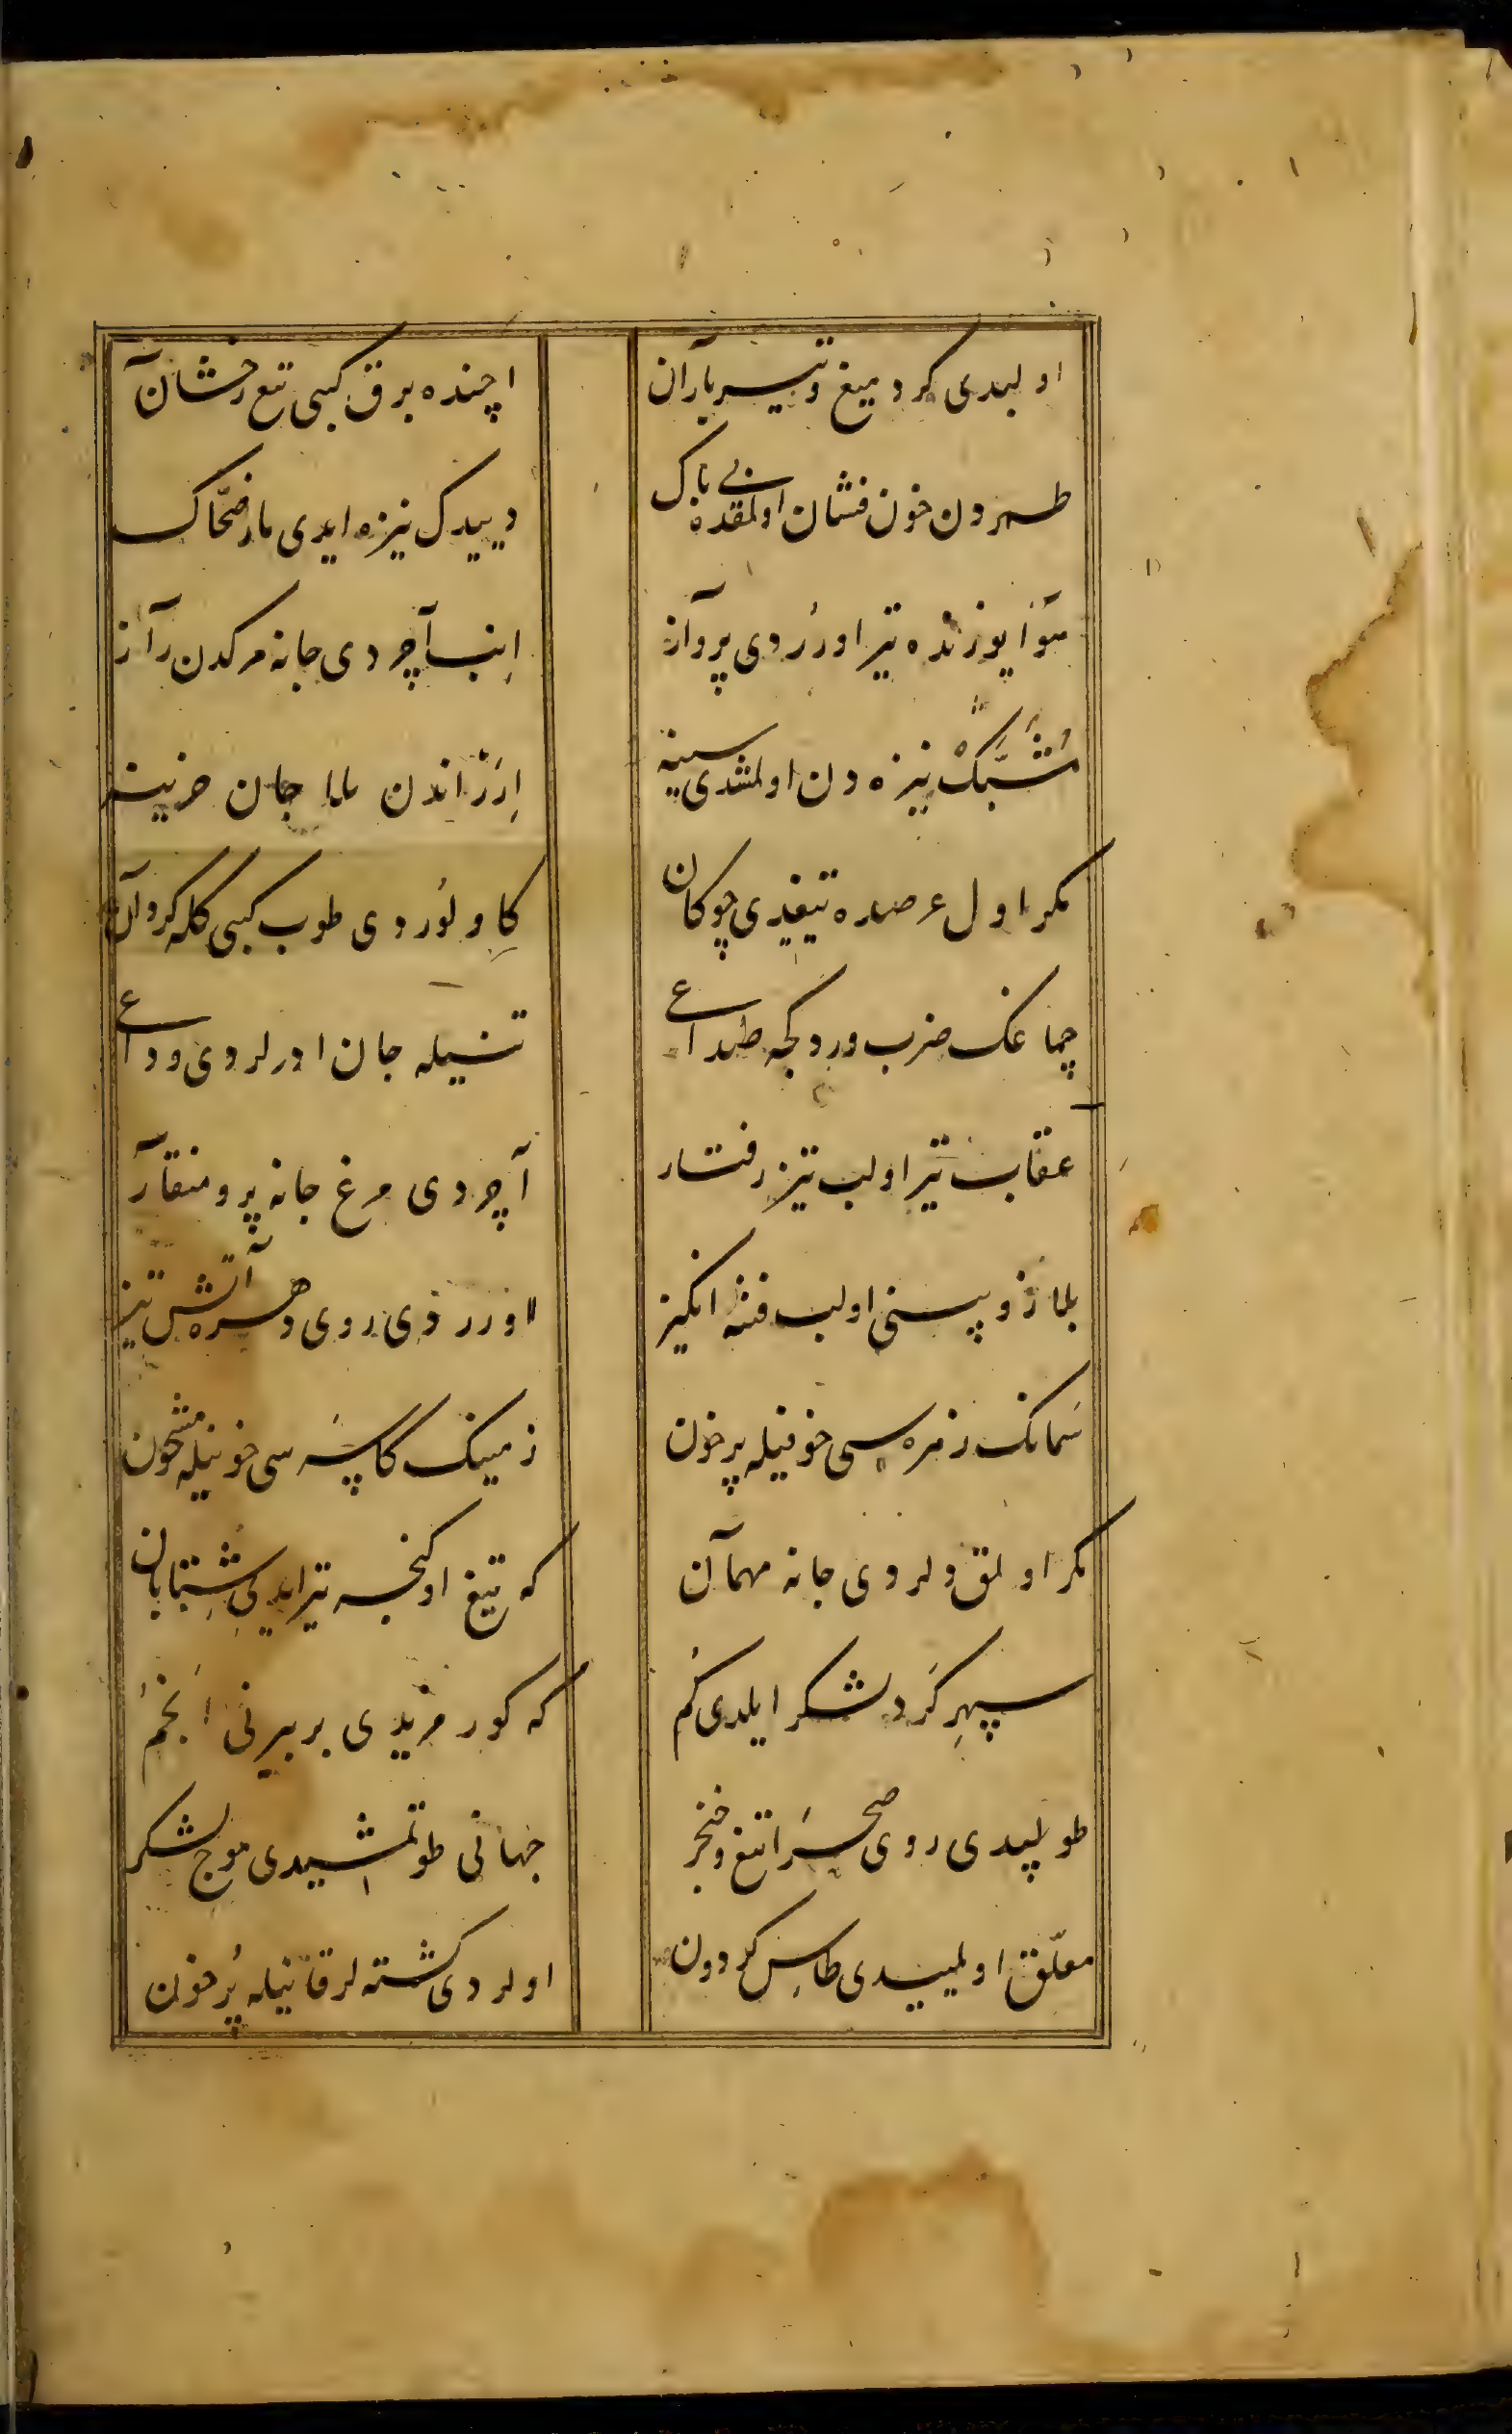 اولبدی کرد میغ و تیر باران
اچنده برق کبی تیغ رخشان
طمردن خون فشان اولمقده بی باک
دییدک نیزه ایدی مار ضحّاک
هوا یوزنده تیر اوررُدی پرواز
اِینب آچردی جانه مرکدن راز
مُشَبَّکْ نیزه دن اولمشدی سینه
اِرَرْ اندن بلا جان حزینه
مکر اول عرصده تیغیدی چوکان
کِاولُوردی طوب کبی کله کردان
چماغک ضرب وردکجه صداع
تنیله جان ایدرلردی وداع
عقاب تیر اولب تیز رفتار
آچردی مرغ جانه پر و منقار
بلا ذوپینی اولب فتنه انکیز
اورردی روی دهره آتش تیز
سَمانک زمره سی خوفیله پر خون
زمینک کاسَه سی خونیله مشحون
مکر اولق ولردی جانه مهمان
که تیغ اوکنجه تیر ایدی شتابان
سپهرِ کَرد لشکر ایلدی کُم
که کورمزیدی بربیرنی اَنجُم
طولیدی روی صحرَا تیغ و خنجر
جهانی طوتمشیدی موج لشکر
معلّق اولمیسدی طاسِ کردون
اولردی کشته لر قانیله پُر خون